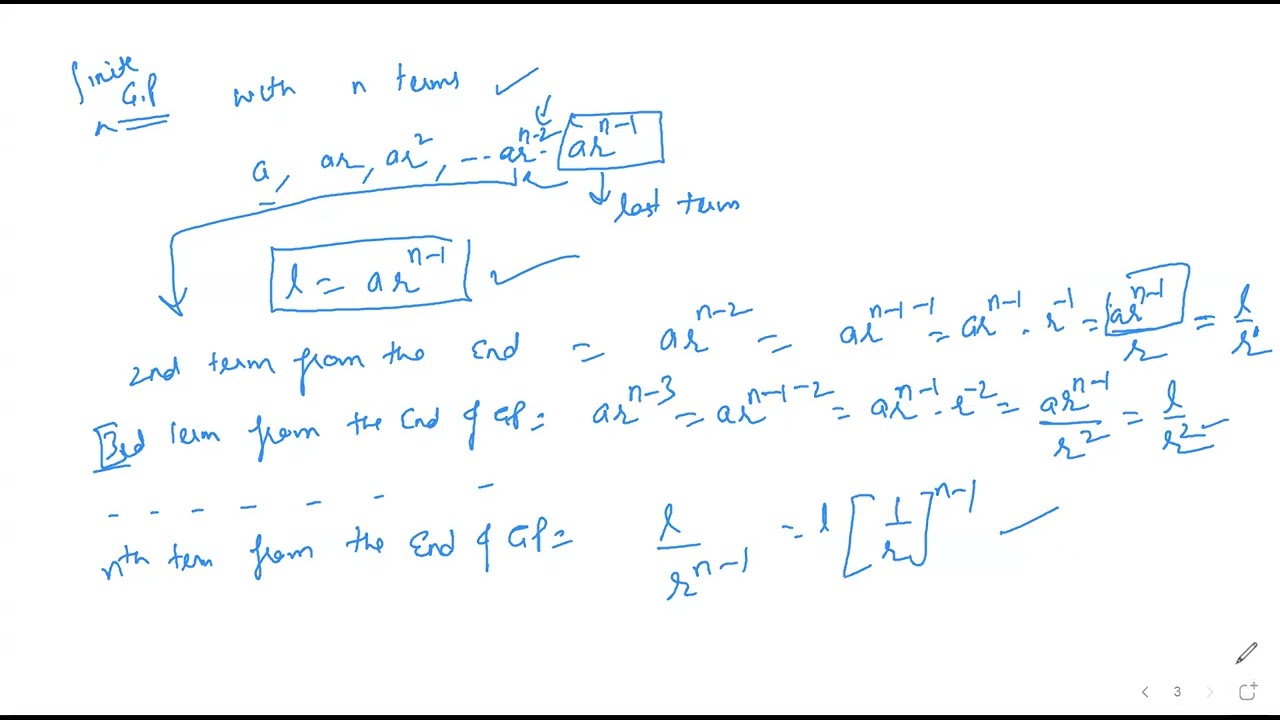 finite G.P with n terms ✓
n
a, ar, ar², --- ar^{n-2} - ar^{n-1}
last term
l = ar^{n-1} ✓
2nd term from the End = ar^{n-2} = ar^{n-1-1} = ar^{n-1} · r^{-1} = ar^{n-1}/r = l/r
3rd Term from the End of GP = ar^{n-3} = ar^{n-1-2} = ar^{n-1} · r^{-2} = ar^{n-1}/r² = l/r²
- - - - - - -
nth term from the End of GP = l/r^{n-1} = l [1/r]^{n-1}
3